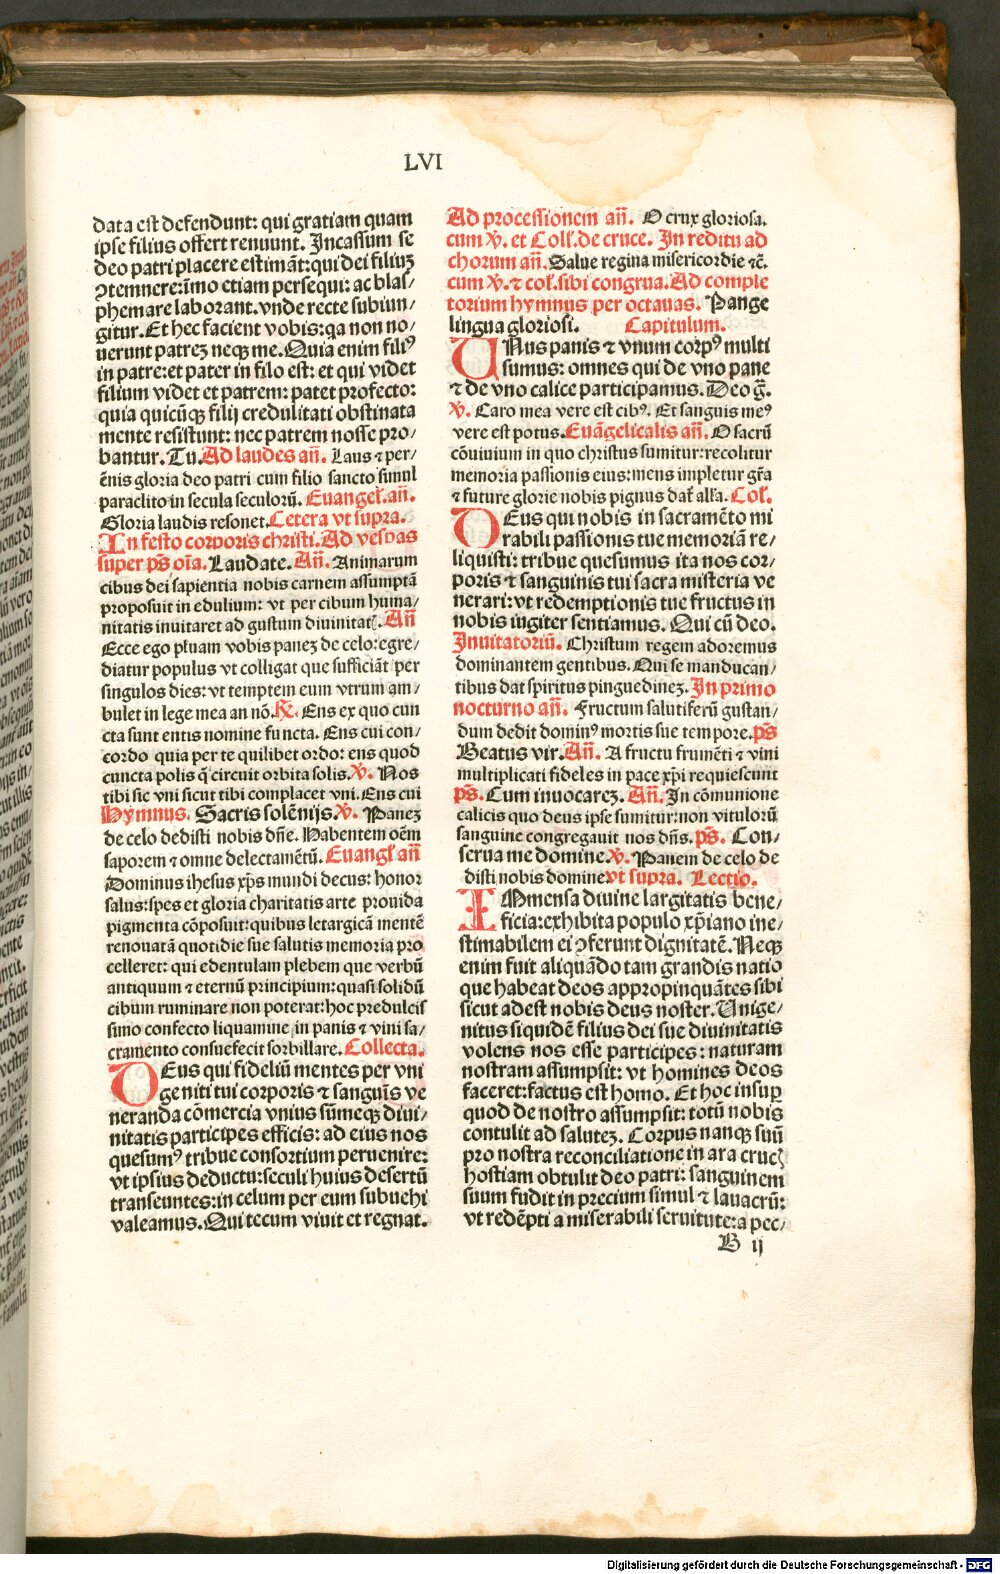 LVI
data est defendunt: qui gratiam quam
ipse filius offert renuunt. Incassum se
deo patri placere estimāt: qui dei filiuʒ
ꝯtemnere: īmo etiam persequi: ac blas/
phemare laborant. vnde recte subiun/
gitur. Et hec facient vobis: qa non no/
uerunt patreʒ neqꝫ me. Quia enim filiꝰ
in patre: et pater in filo est: et qui videt
filium videt et patrem: patet profecto:
quia quicūqꝫ filij credulitati obstinata
mente resistunt: nec patrem nosse pro/
bantur. Tu. Ad laudes añ. Laus ⁊ per/
ēnis gloria deo patri cum filio sancto simul
paraclito in secula seculorū. Euangeł. añ.
Gloria laudis resonet. Cetera vt supra.
In festo corporis christi. Ad vespas
super ps̄ oīa. Laudate. Añ. Animarum
cibus dei sapientia nobis carnem assumptā
proposuit in edulium: vt per cibum huma/
nitatis inuitaret ad gustum diuinitatꝭ. Añ
Ecce ego pluam vobis paneʒ de celo: egre/
diatur populus vt colligat que sufficiāt per
singulos dies: vt temptem eum vtrum am/
bulet in lege mea an nō. ℟. Ens ex quo cun
cta sunt entis nomine functa. Ens cui con/
cordo quia per te quilibet ordo: ens quod
cuncta polis q̄ circuit orbita solis. ℣. Nos
tibi sic vni sicut tibi complacet vni. Ens cui
Hymnus. Sacris solēnijs. ℣. Paneʒ
de celo dedisti nobis dñe. Habentem oēm
saporem ⁊ omne delectamētū. Euangł añ
Dominus ihesus xp̄s mundi decus: honor
salus: spes et gloria charitatis arte prouida
pigmenta cōposuit: quibus letargicā mentē
renouatā quotidie sue salutis memoria pro
celleret: qui edentulam plebem que verbū
antiquum ⁊ eternū principium: quasi solidū
cibum ruminare non poterat: hoc predulcis
simo confecto liquamine in panis ⁊ vini sa/
cramento consuefecit sorbillare. Collecta.
DEus qui fideliū mentes per vni
geniti tui corporis ⁊ sanguīs ve
neranda cōmercia vnius sūmeqꝫ diui/
nitatis participes efficis: ad eius nos
quesumꝰ tribue consortium peruenire:
vt ipsius deductu: seculi huius desertū
transeuntes: in celum per eum subuehi
valeamus. Qui tecum viuit et regnat.
Ad processionem añ. O crux gloriosa.
cum ℣. et Coll. de cruce. In reditu ad
chorum añ. Salue regina misericordie ⁊c̄.
cum ℣. ⁊ coł. sibi congrua. Ad comple
torium hymnus per octauas. Pange
lingua gloriosi. Capitulum.
UNus panis ⁊ vnum corpꝰ multi
sumus: omnes qui de vno pane
⁊ de vno calice participamus. Deo ḡ.
℣. Caro mea vere est cibꝰ. Et sanguis meꝰ
vere est potus. Euāgelicalis añ. O sacrū
cōuiuium in quo christus sumitur: recolitur
memoria passionis eius: mens impletur gr̄a
⁊ future glorie nobis pignus dať allʼa. Coł.
DEus qui nobis in sacramēto mi
rabili passionis tue memoriā re/
liquisti: tribue quesumus ita nos cor/
poris ⁊ sanguinis tui sacra misteria ve
nerari: vt redemptionis tue fructus in
nobis iugiter sentiamus. Qui cū deo.
Inuitatoriū. Christum regem adoremus
dominantem gentibus. Qui se manducan/
tibus dat spiritus pinguedineʒ. In primo
nocturno añ. Fructum salutiferū gustan/
dum dedit dominꝰ mortis sue tempore. ps̄
Beatus vir. Añ. A fructu frumēti ⁊ vini
multiplicati fideles in pace xp̄i requiescunt
ps̄. Cum inuocareʒ. Añ. In cōmunione
calicis quo deus ipse sumitur: non vitulorū
sanguine congregauit nos dñs. ps̄. Con/
serua me domine. ℣. Panem de celo de
disti nobis domine. vt supra. Lectio.
IMmensa diuine largitatis bene/
ficia: exhibita populo xp̄iano ine/
stimabilem ei ꝯferunt dignitatē. Neqꝫ
enim fuit aliquādo tam grandis natio
que habeat deos appropinquātes sibi
sicut adest nobis deus noster. Unige/
nitus siquidē filius dei sue diuinitatis
volens nos esse participes: naturam
nostram assumpsit: vt homines deos
faceret: factus est homo. Et hoc insuꝑ
quod de nostro assumpsit: totū nobis
contulit ad saluteʒ. Corpus nanqꝫ suū
pro nostra reconciliatione in ara crucꝭ
hostiam obtulit deo patri: sanguinem
suum fudit in precium simul ⁊ lauacrū:
vt redēpti a miserabili seruitute: a pec/
B ij
Digitalisierung gefördert durch die Deutsche Forschungsgemeinschaft - DFG